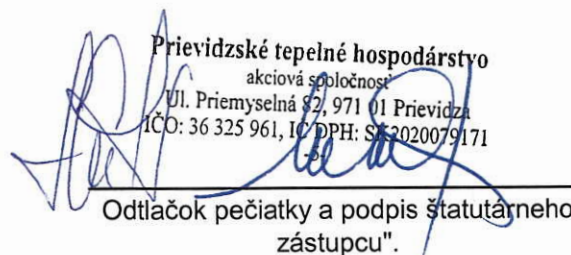 Prievidzské tepelné hospodárstvo
akciová spoločnosť
Ul. Priemyselná 82, 971 01 Prievidza
IČO: 36 325 961, IČ DPH: SK2020079171
-5-
Odtlačok pečiatky a podpis štatutárneho
zástupcu".